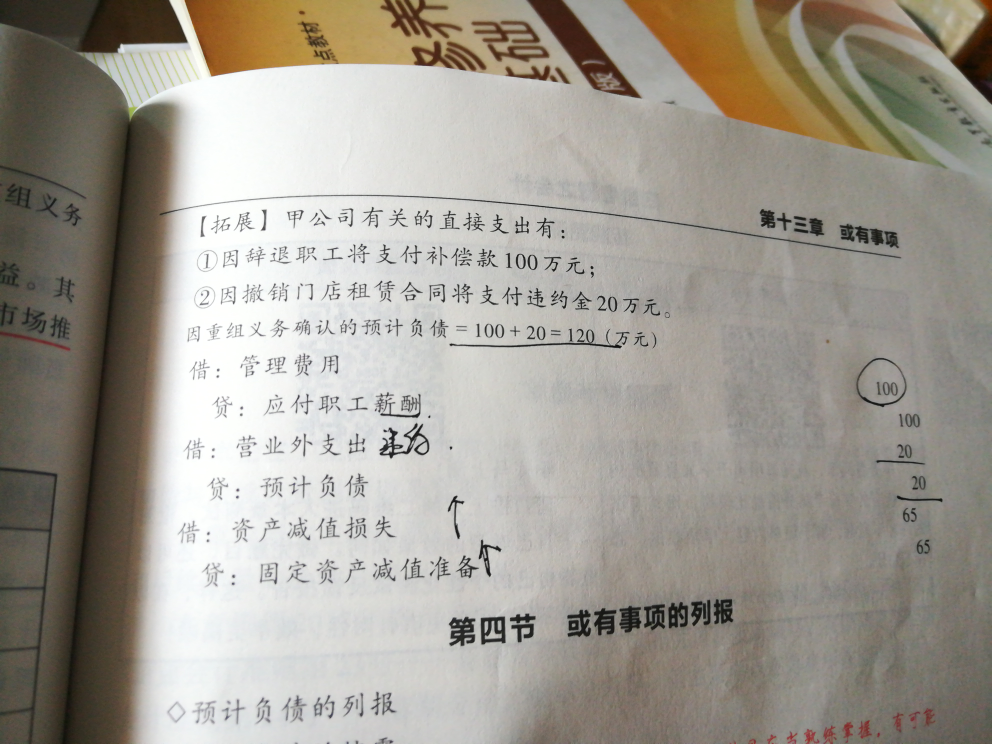 点教材·
养
修
基础
版）
组义务
益。其
市场推
第十三章 或有事项
【拓展】甲公司有关的直接支出有：
①因辞退职工将支付补偿款100万元；
②因撤销门店租赁合同将支付违约金20万元。
因重组义务确认的预计负债=100+20=120（万元）
借：管理费用 100
贷：应付职工薪酬 100
借：营业外支出 违约 20
贷：预计负债 20
借：资产减值损失 65
贷：固定资产减值准备 65
第四节 或有事项的列报
◇预计负债的列报
熟练掌握，有可能